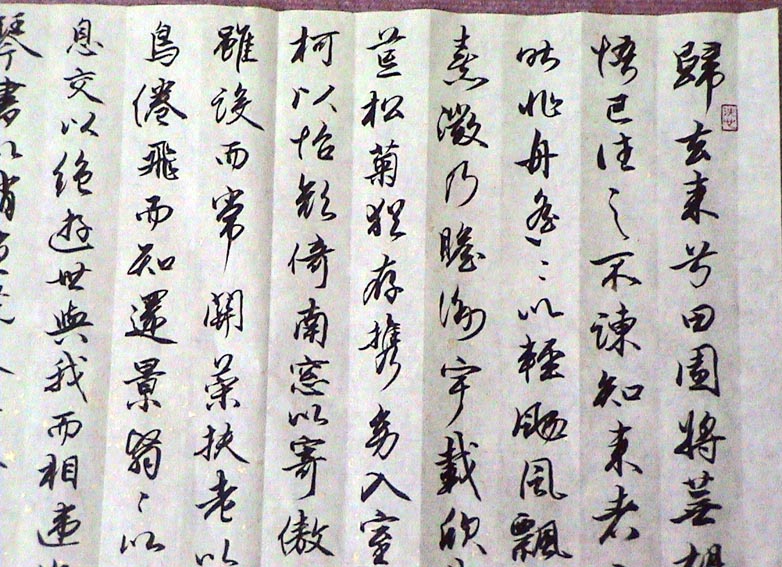 歸去來兮田園將蕪胡
悟已往之不諫知來者
昨非舟遙〻以輕颺風飄
熹微乃瞻衡宇載欣
荒松菊猶存携幼入室
柯以怡顏倚南窓以寄傲
雖設而常關策扶老以
鳥倦飛而知還景翳〻以
息交以絶遊世與我而相違
琴書以消憂